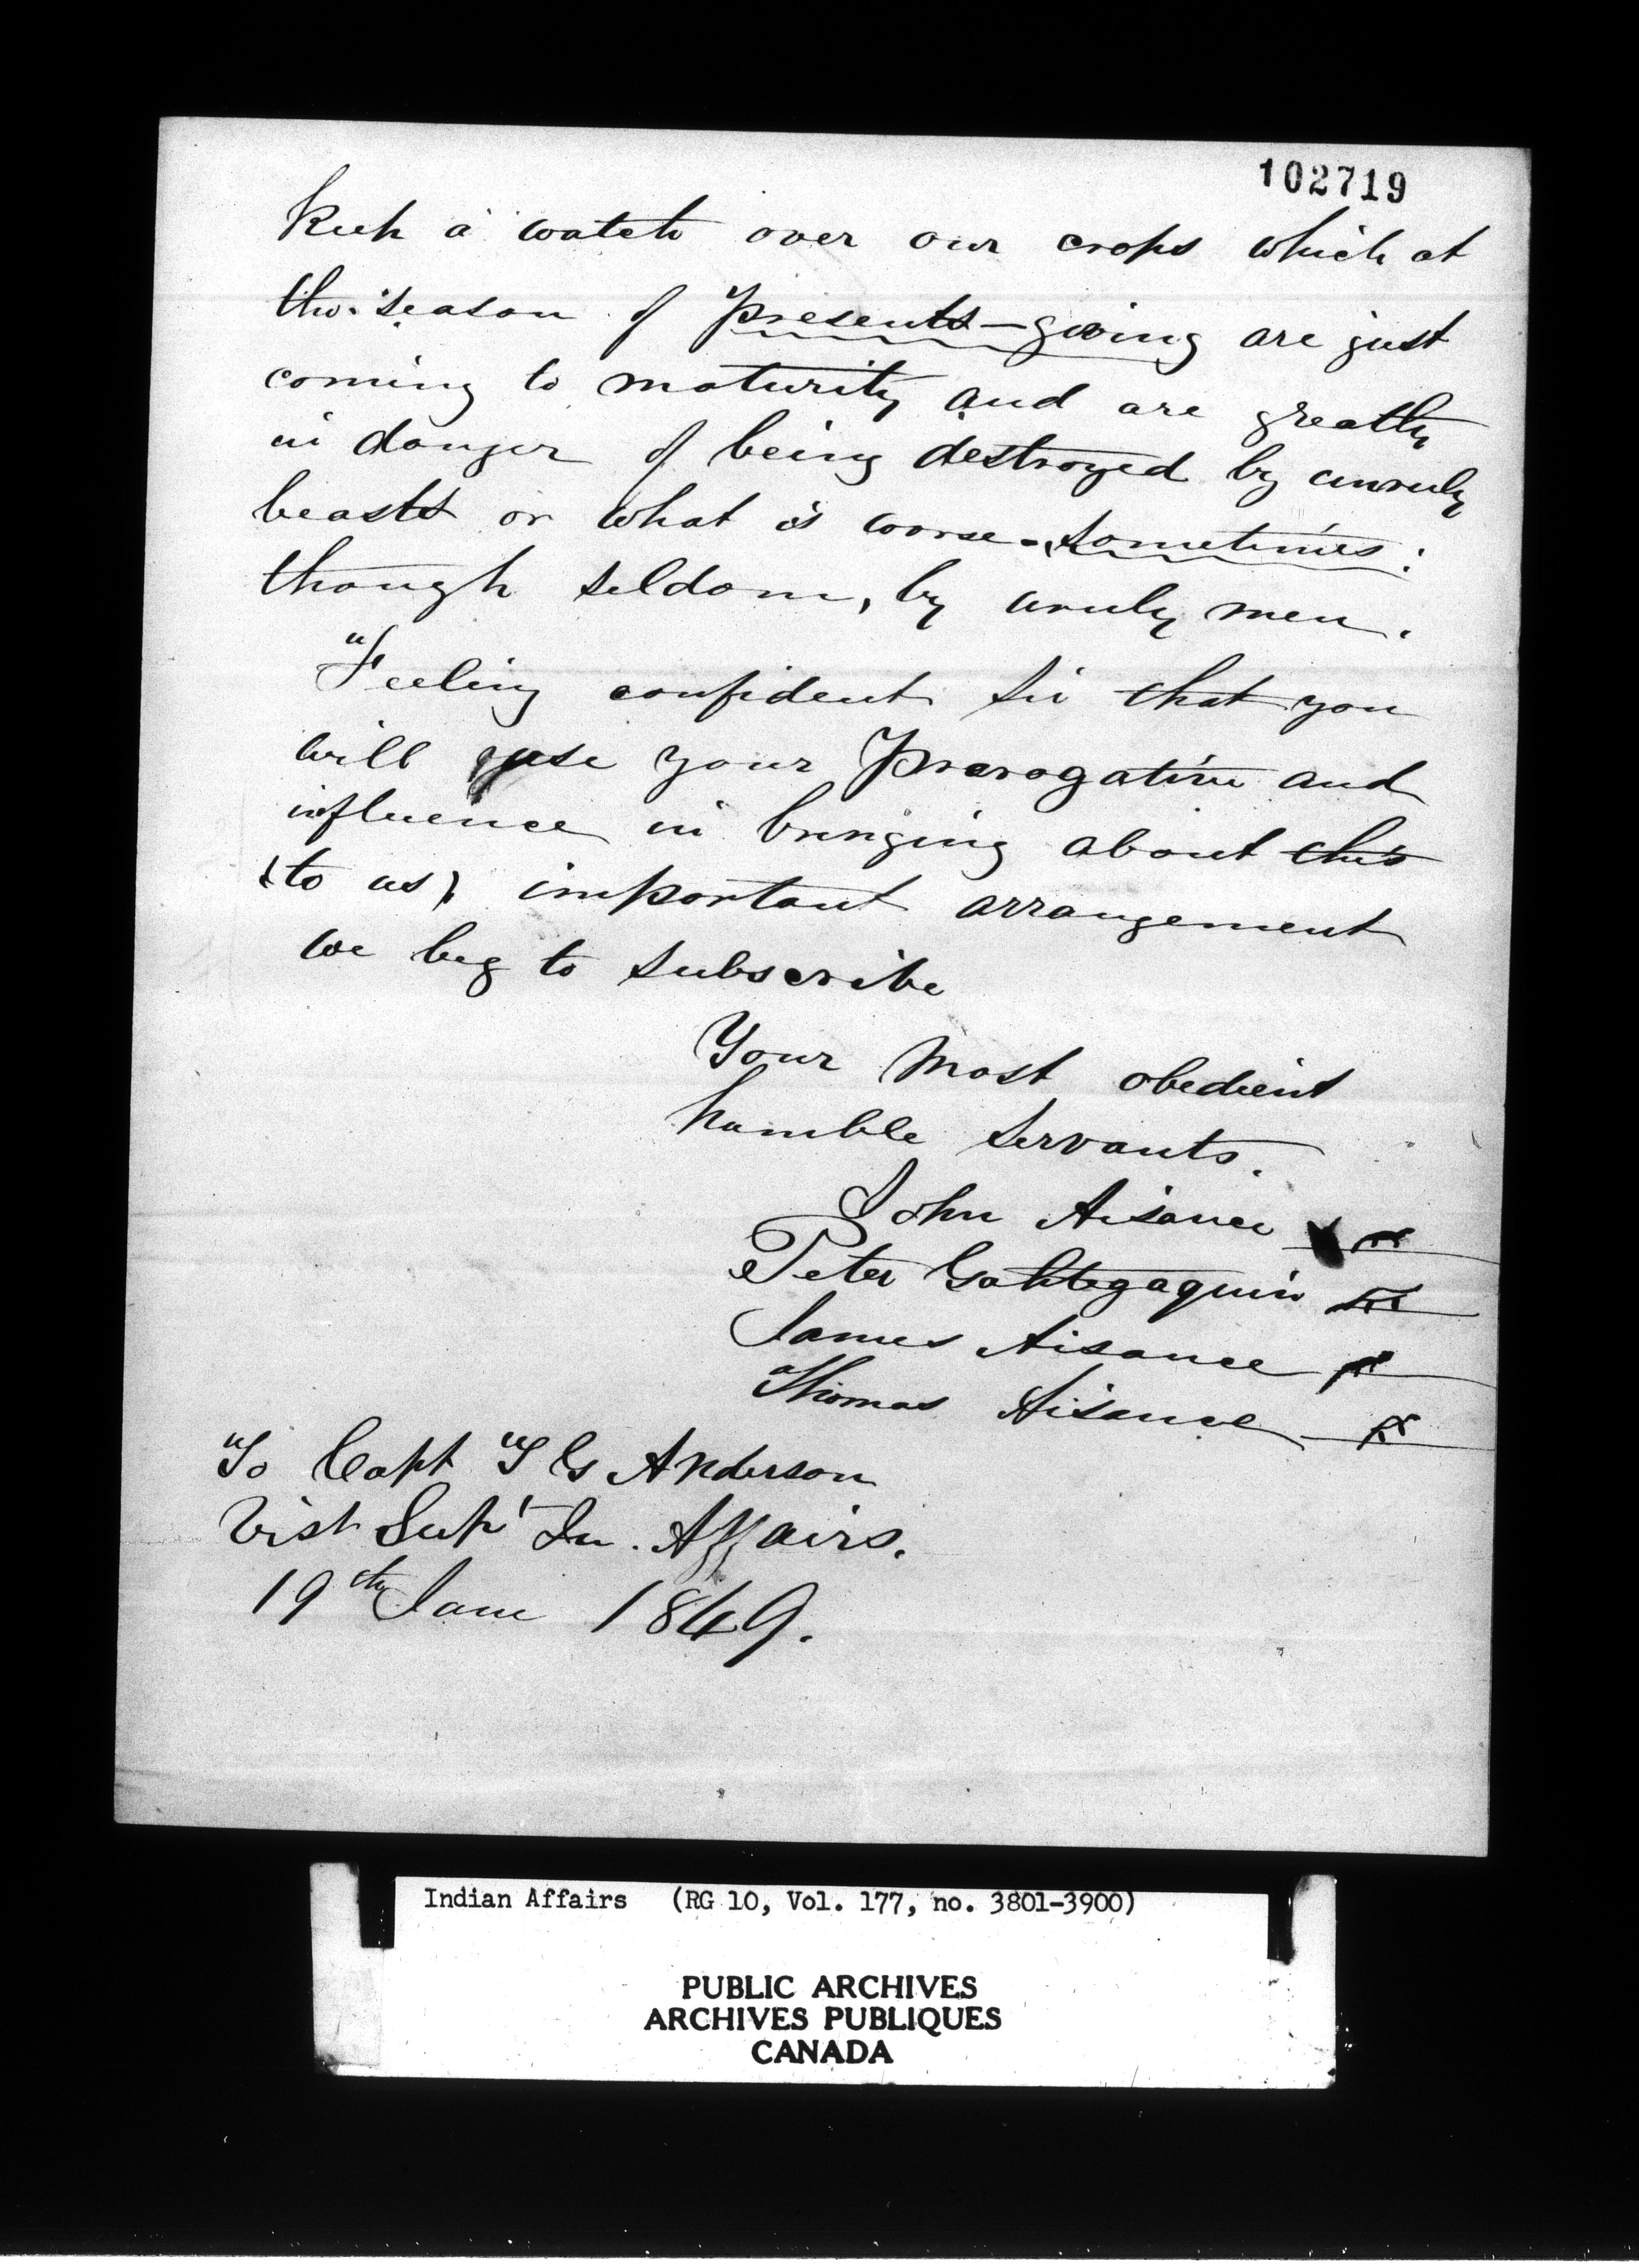 102719
Keep a watch over our crops which at
the season of presents-giving are just
coming to maturity and are greatly
in danger of being destroyed by unruly
beasts or what is worse - sometimes:
though seldom, by unruly men.
Feeling confident Sir that you
will use your Prerogative and
influence in bringing about this
(to us) important arrangement
we beg to subscribe
Your most obedient
humble servants.
John Aisance
Peter Gahtegaquin
James Aisance
Thomas Aisance
To Capt T G Anderson
Vist Supt In. Affairs.
19th June 1849.
Indian Affairs (RG 10, Vol. 177, no. 3801-3900)
PUBLIC ARCHIVES
ARCHIVES PUBLIQUES
CANADA